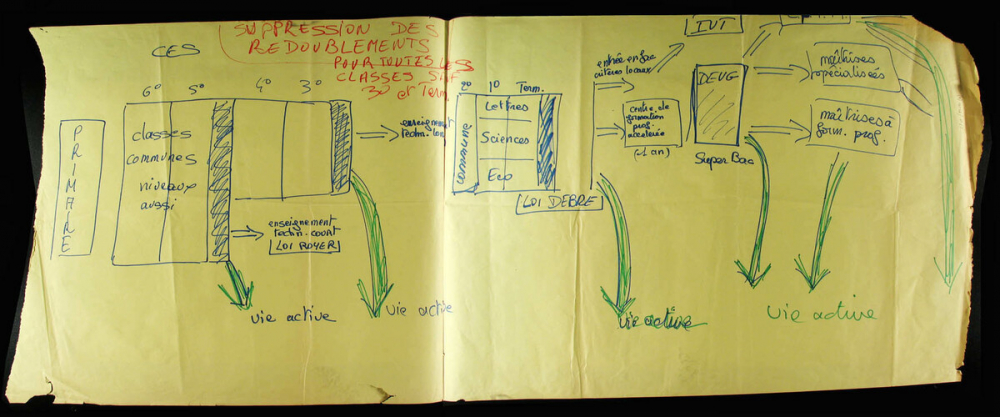 SUPPRESSION DES
REDOUBLEMENTS
POUR TOUTES LES
CLASSES SAUF
3º et Term.
CES
6º 5º 4º 3º
PRIMAIRE
classes
communes
niveaux
aussi
enseignement
techn. court
LOI ROYER
vie active
enseignement
techn. long
vie active
2º 1º Term.
COMMUNE
Lettres
Sciences
Eco
LOI DEBRE
entrée en fac
critères locaux
centre de
formation
prof.
(1 an)
vie active
IUT
DEUG
Super Bac
maîtrises
spécialisées
maîtrises à
form. prof.
vie active